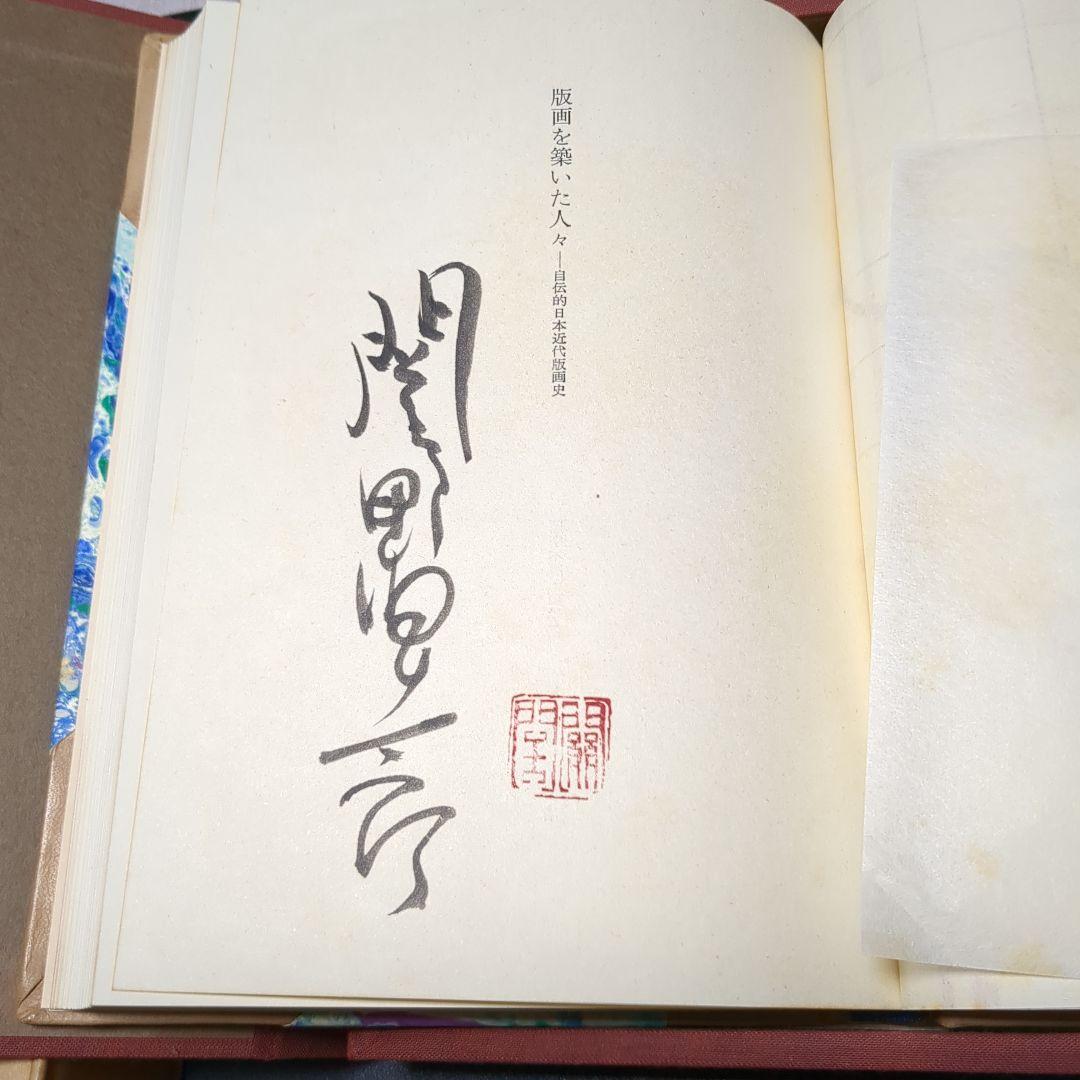 版画を築いた人々―自伝的日本近代版画史
関野凖一郎